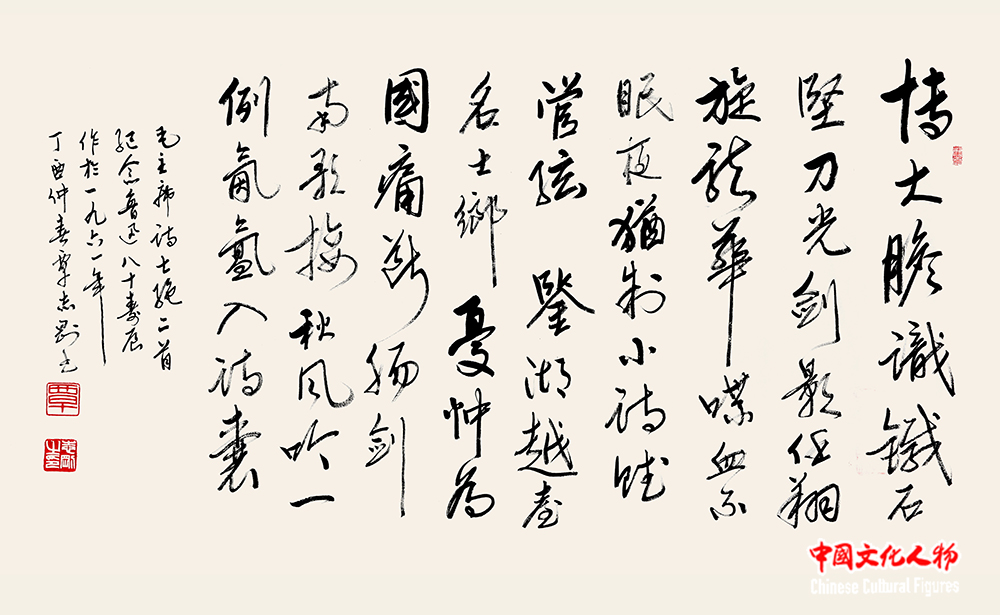 博大膽識鐵石
堅刀光劍影任翔
旋龍華喋血不
眠夜猶制小詩賦
管弦 鑒湖越臺
名士鄉 憂忡為
國痛斷腸劍
南歌接秋風吟一
例氤氳入詩囊
毛主席詩七絕二首
紀念魯迅八十壽辰
作於一九六一年
丁酉仲春覃志剛書
覃
中國文化人物
Chinese Cultural Figures